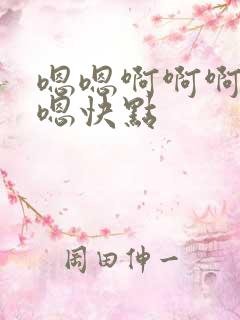 嗯嗯啊啊啊
嗯快點
周田伸一